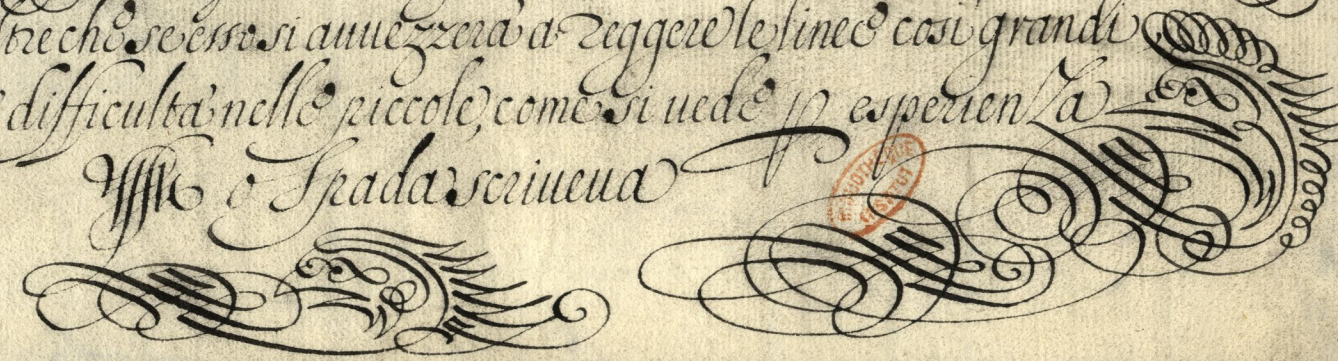 tre che se esso si auuezzerà à reggere le linee così grandi
difficultà nelle piccole, come si uede p esperienza
Spada scriueua